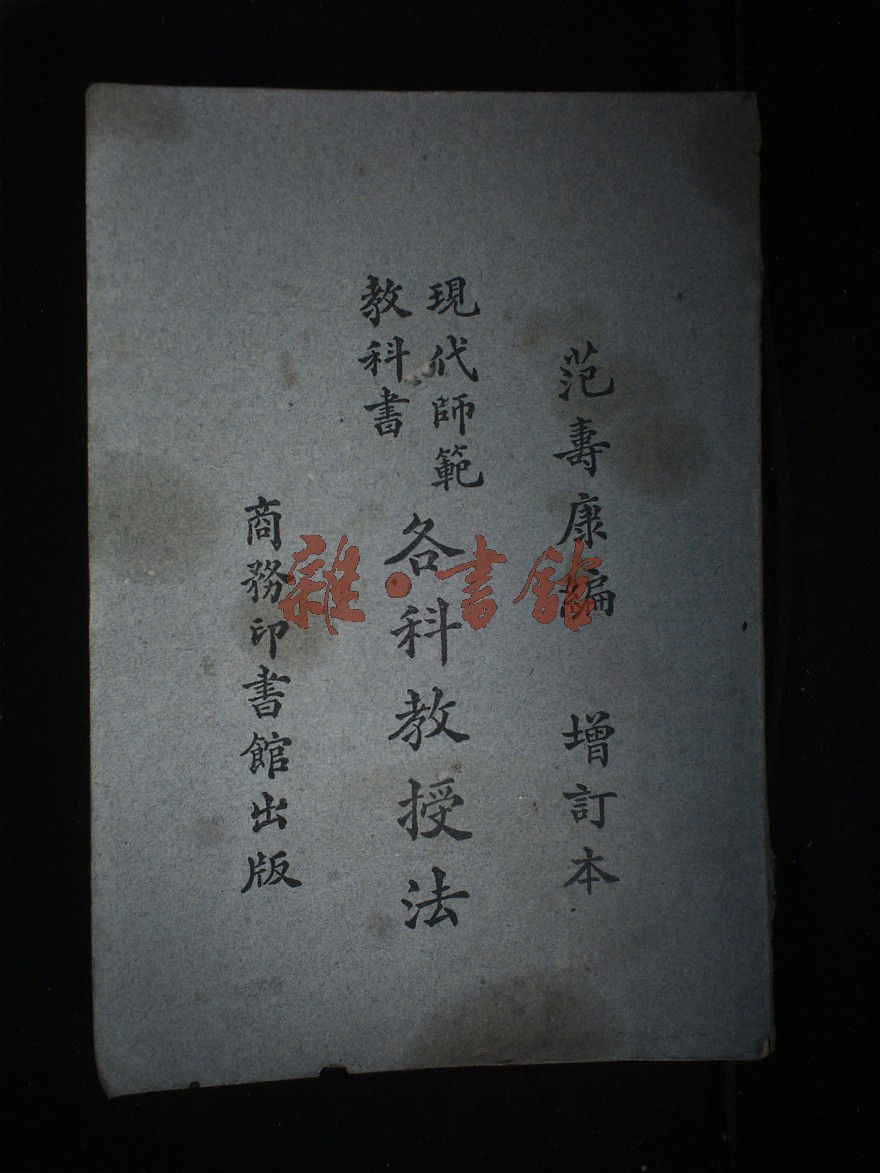 范壽康編 增訂本
現代師範
教科書
各科教授法
商務印書館出版
雜·書館